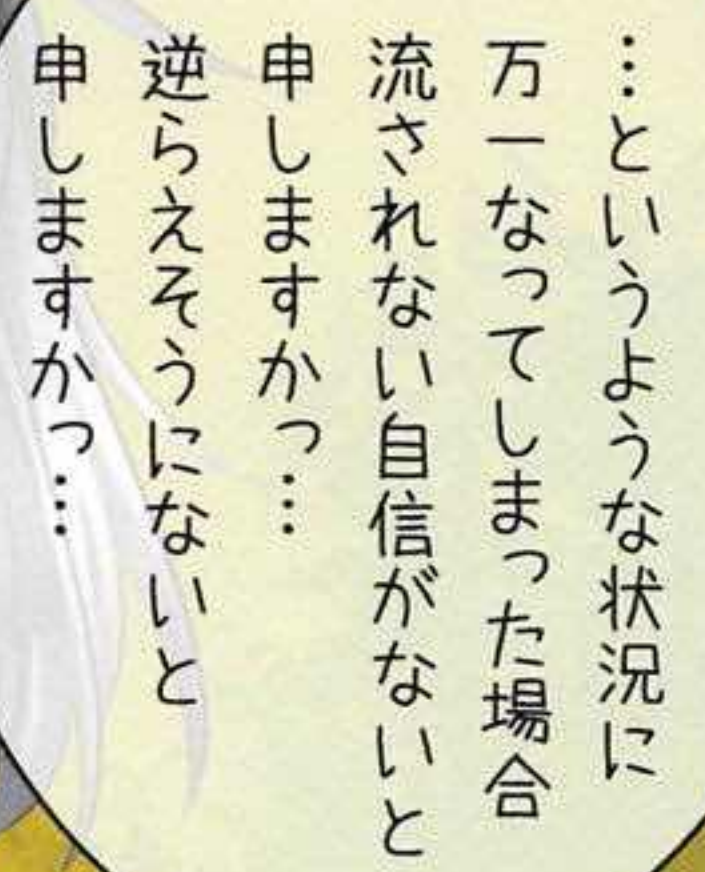 …というような状況に
万一なってしまった場合
流されない自信がないと
申しますかっ…
逆らえそうにないと
申しますかっ…